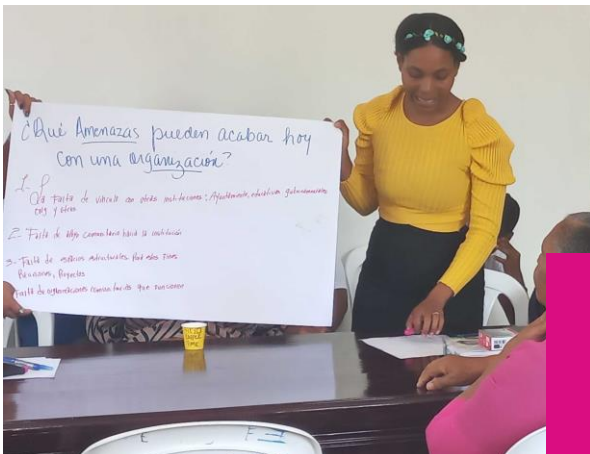 ¿Qué Amenazas pueden acabar hoy
con una organización?
1.
Falta de vinculo con otras instituciones: Ayuntamiento, educativas, gubernamentales
ong y otras
2. Falta de apoyo comunitario hacia la institución
3. Falta de espacios estructurales Para estos Fines
Reuniones, Proyectos
Falta de organizaciones comunitarias que funcionen
E F